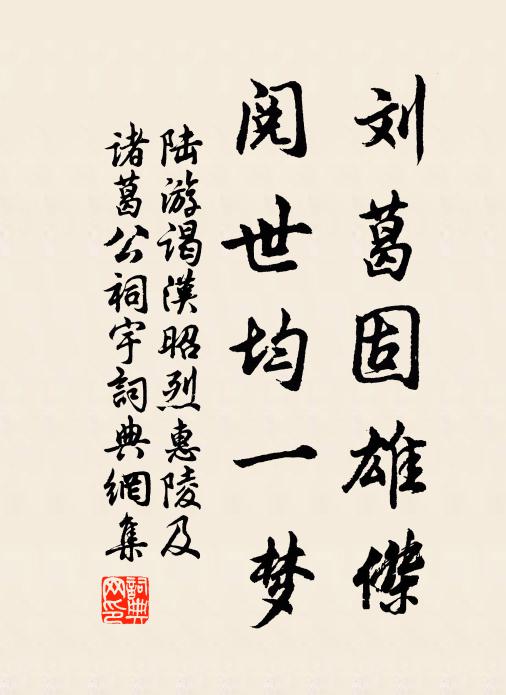 刘葛固雄傑
阅世均一梦
陆游谒漢昭烈惠陵及
诸葛公祠宇詞典網集
詞典網印